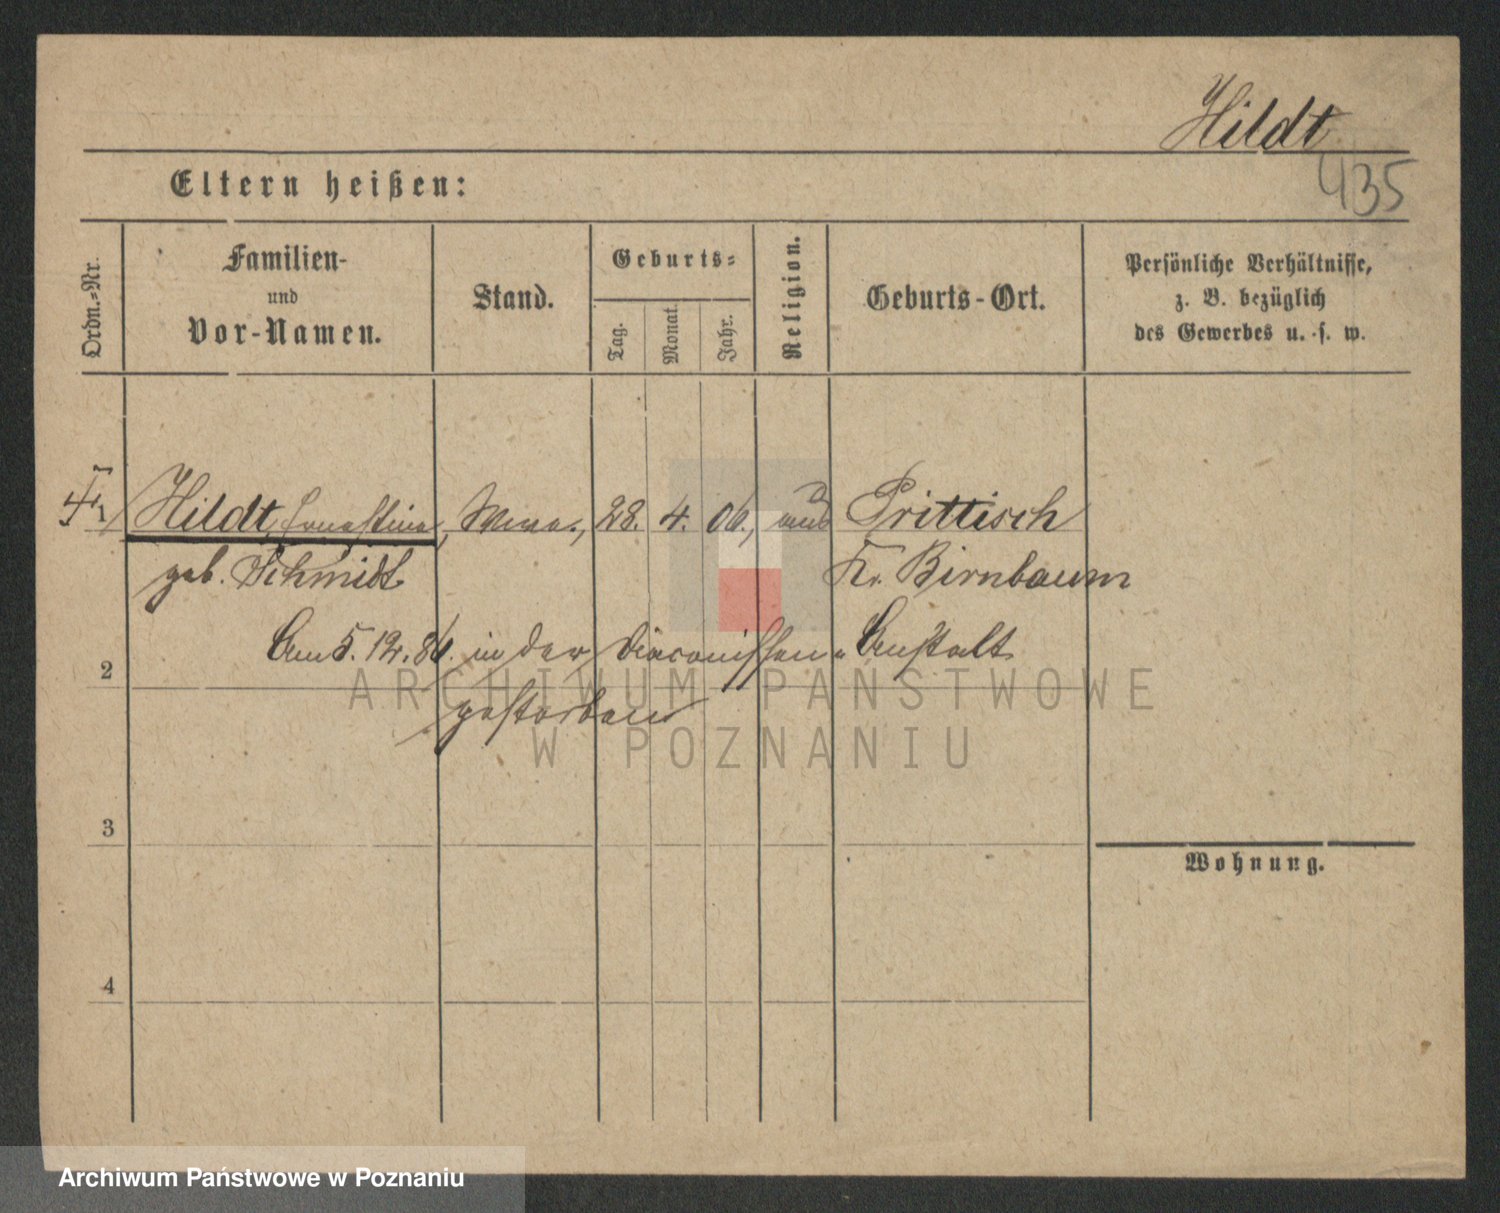 Hildt
435
Eltern heißen:
Ordn.=Nr.
Familien-
und
Vor-Namen.
Stand.
Geburts=
Tag.
Monat.
Jahr.
Religion.
Geburts-Ort.
Persönliche Verhältnisse,
z. B. bezüglich
des Gewerbes u. s. w.
1 Hildt, Ernestine, Wwe., 28. 4. 06., aus Prittisch
geb. Schmidt Kr. Birnbaum
Am 5.12.86. in der Diaconissen-Anstalt
2
gestorben
ARCHIWUM PAŃSTWOWE
W POZNANIU
3
Wohnung.
4
Archiwum Państwowe w Poznaniu